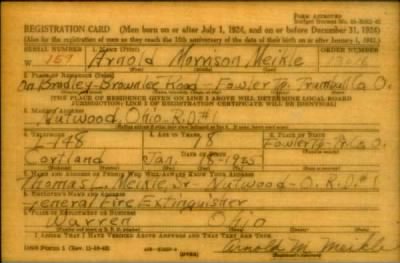 FORM APPROVED
REGISTRATION CARD (Men born on or after July 1, 1924, and on or before December 31, 1924)
(Also for the registration of men as they reach the 18th anniversary of the date of their birth on or after January 1, 1943.)
SERIAL NUMBER 1. NAME (Print) ORDER NUMBER
W 159 Arnold Morrison Meikle
2. PLACE OF RESIDENCE (Print)
On Bradley-Brownlee Road - Fowler Tp. Trumbull Co. O.
(THE PLACE OF RESIDENCE GIVEN ON LINE 2 ABOVE WILL DETERMINE LOCAL BOARD
JURISDICTION; LINE 2 OF REGISTRATION CERTIFICATE WILL BE IDENTICAL)
3. MAILING ADDRESS
Nutwood, Ohio - R.D. #1
4. TELEPHONE 5. AGE IN YEARS 6. PLACE OF BIRTH
2-148 18 Fowler Tp. Tr. Co. O.
Cortland Jan. 18-1925
7. NAME AND ADDRESS OF PERSON WHO WILL ALWAYS KNOW YOUR ADDRESS
Thomas L. Meikle, Jr - Nutwood - O. R.D. #1
8. EMPLOYER'S NAME AND ADDRESS
General Fire Extinguisher
9. PLACE OF EMPLOYMENT OR BUSINESS
Warren Ohio
I AFFIRM THAT I HAVE VERIFIED ABOVE ANSWERS AND THAT THEY ARE TRUE.
(OVER) Arnold M. Meikle